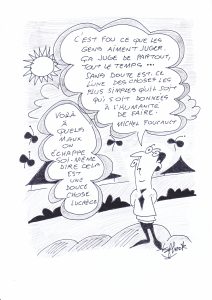 C'EST FOU CE QUE LES
GENS AIMENT JUGER.
ÇA JUGE DE PARTOUT,
TOUT LE TEMPS...
SANS DOUTE EST-CE
L'UNE DES CHOSES LES
PLUS SIMPLES QU'IL SOIT
QUI SOIT DONNÉES
À L'HUMANITÉ
DE FAIRE.
MICHEL FOUCAULT
VOILÀ
À
QUELS
MAUX
ON
ÉCHAPPE
SOI-MÊME
DIRE CELA
EST
UNE
DOUCE
CHOSE
LUCRÈCE